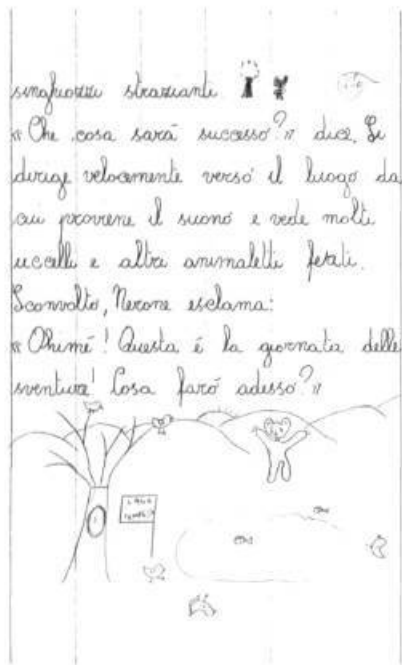 singhiozzi strazianti
« Che cosa sará successo? » dice. Si
dirige velocemente verso il luogo da
cui proviene il suono e vede molti
uccelli e altri animaletti feriti.
Sconvolto, Nerone esclama:
« Ohimé! Questa é la giornata delle
sventure! Cosa faró adesso? »
LAGO